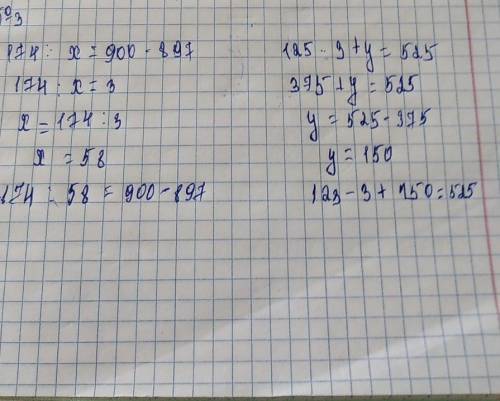 №3
174 : x = 900 - 897
174 : x = 3
x = 174 : 3
x = 58
174 : 58 = 900 - 897
125 · 3 + y = 525
375 + y = 525
y = 525 - 375
y = 150
123 - 3 + 150 = 525